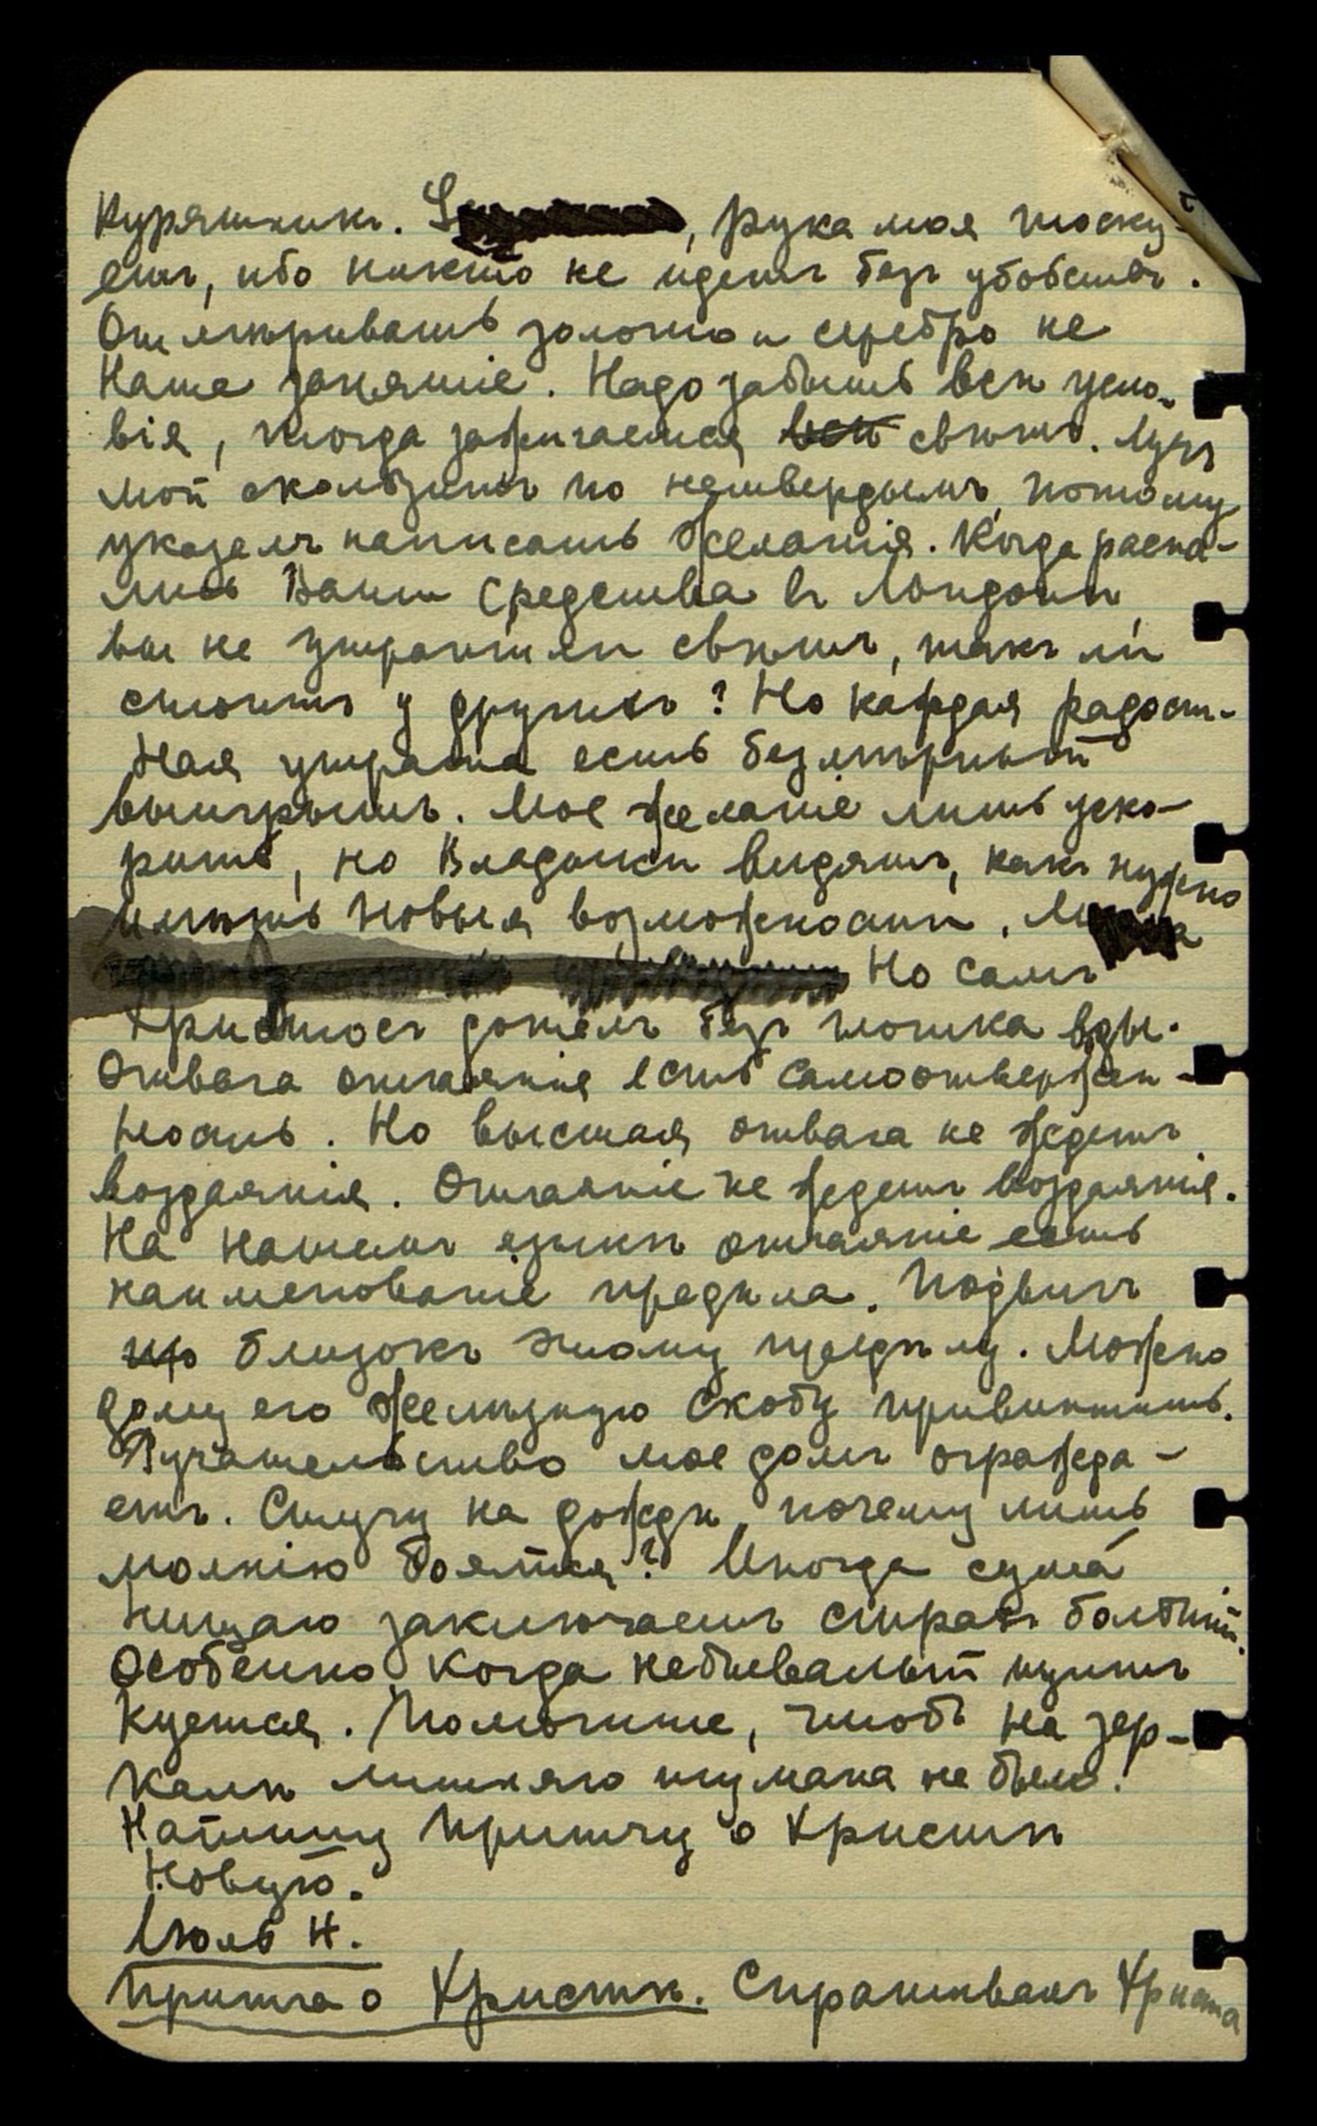 Курятникъ. , рука моя тоску-
етъ, ибо никто не идетъ безъ убобствъ.
Отмѣривать золото и серебро не
Наше занятіе. Надо забыть всѣ усло-
вія, тогда зажигается свѣтъ. Лучъ
мой скользитъ по нетвердымъ, потому
указалъ написать желанія. Когда распа-
лись Ваши средства въ Лондонѣ,
вы не утратили свѣтъ, такъ ли
стоитъ у другихъ? Но каждая радост-
ная утрата есть безмѣрный
выигрышъ. Мое желаніе лишь уско-
рить, но Владыки видятъ, какъ нужно
имѣть новыя возможности.
Но самъ
Христосъ дошелъ безъ глотка воды.
Отвага отчаянія есть самоотвержен-
ность. Но высшая отвага не ждетъ
воздаянія. Отчаяніе не ждетъ воздаянія.
На нашемъ языкѣ отчаяніе есть
наименованіе предѣла. Подвигъ
близокъ этому предѣлу. Можно
дому его желѣзную скобу привинтить.
Ручательство мое домъ огражда-
етъ. Стучу на дождѣ, почему лишь
молнію боятся? Иногда сума
нищаго заключаетъ страхъ большій.
Особенно, когда небывалый щитъ
куется. Помогите, чтобъ на зер-
калѣ лишняго тумана не было!
Напишу притчу о Христѣ
Новую.
Іюль Н.
Притча о Христѣ. Спрашивалъ Христа